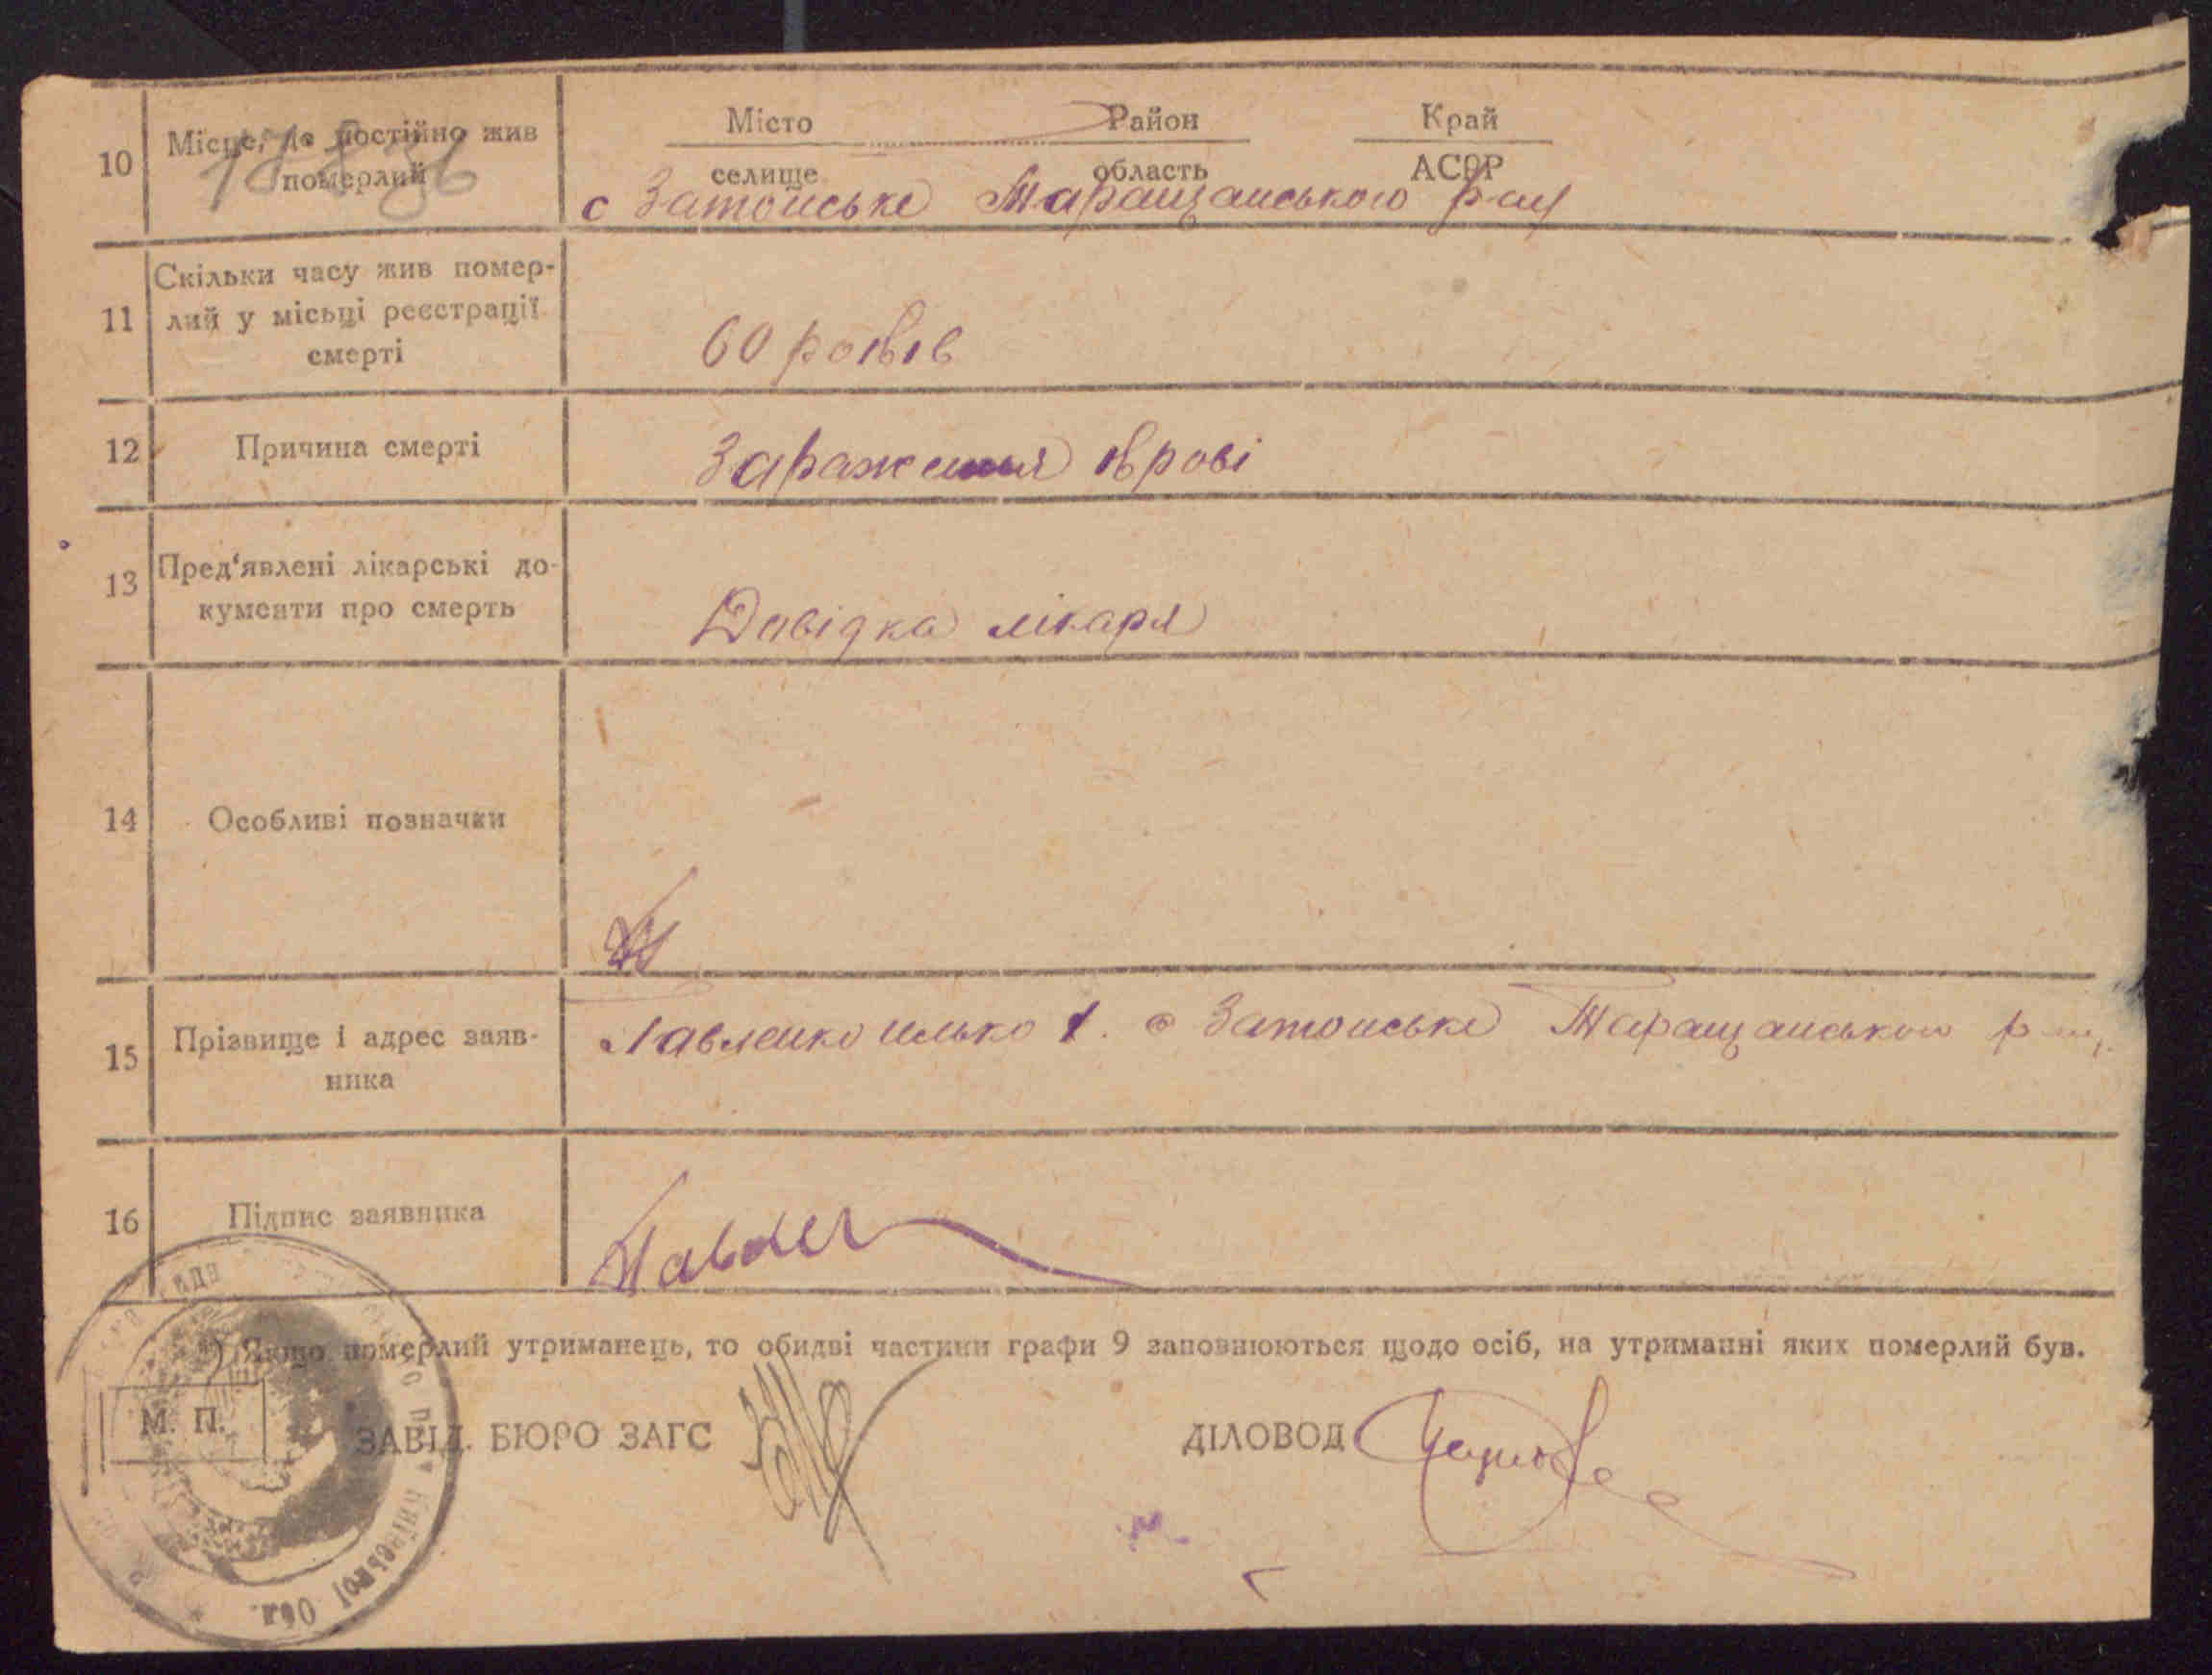 10 Місце, де постійно жив померлий
Місто Район Край
селище область АСРР
с Затонське Таращанського р-ну
11 Скільки часу жив помер-
лий у місьці реєстрації
смерті
60 років
12 Причина смерті
Зараження крові
13 Пред‘явлені лікарські до-
кументи про смерть
Довідка лікаря
14 Особливі позначки
15 Прізвище і адрес заяв-
ника
Павленко Илько с Затонське Таращанського р-ну
16 Підпис заявника
Павлен
*) Якщо померлий утриманець, то обидві частини графи 9 заповнюються щодо осіб, на утриманні яких померлий був.
М. П. ЗАВІД. БЮРО ЗАГС ДІЛОВОД
Київської Обл.